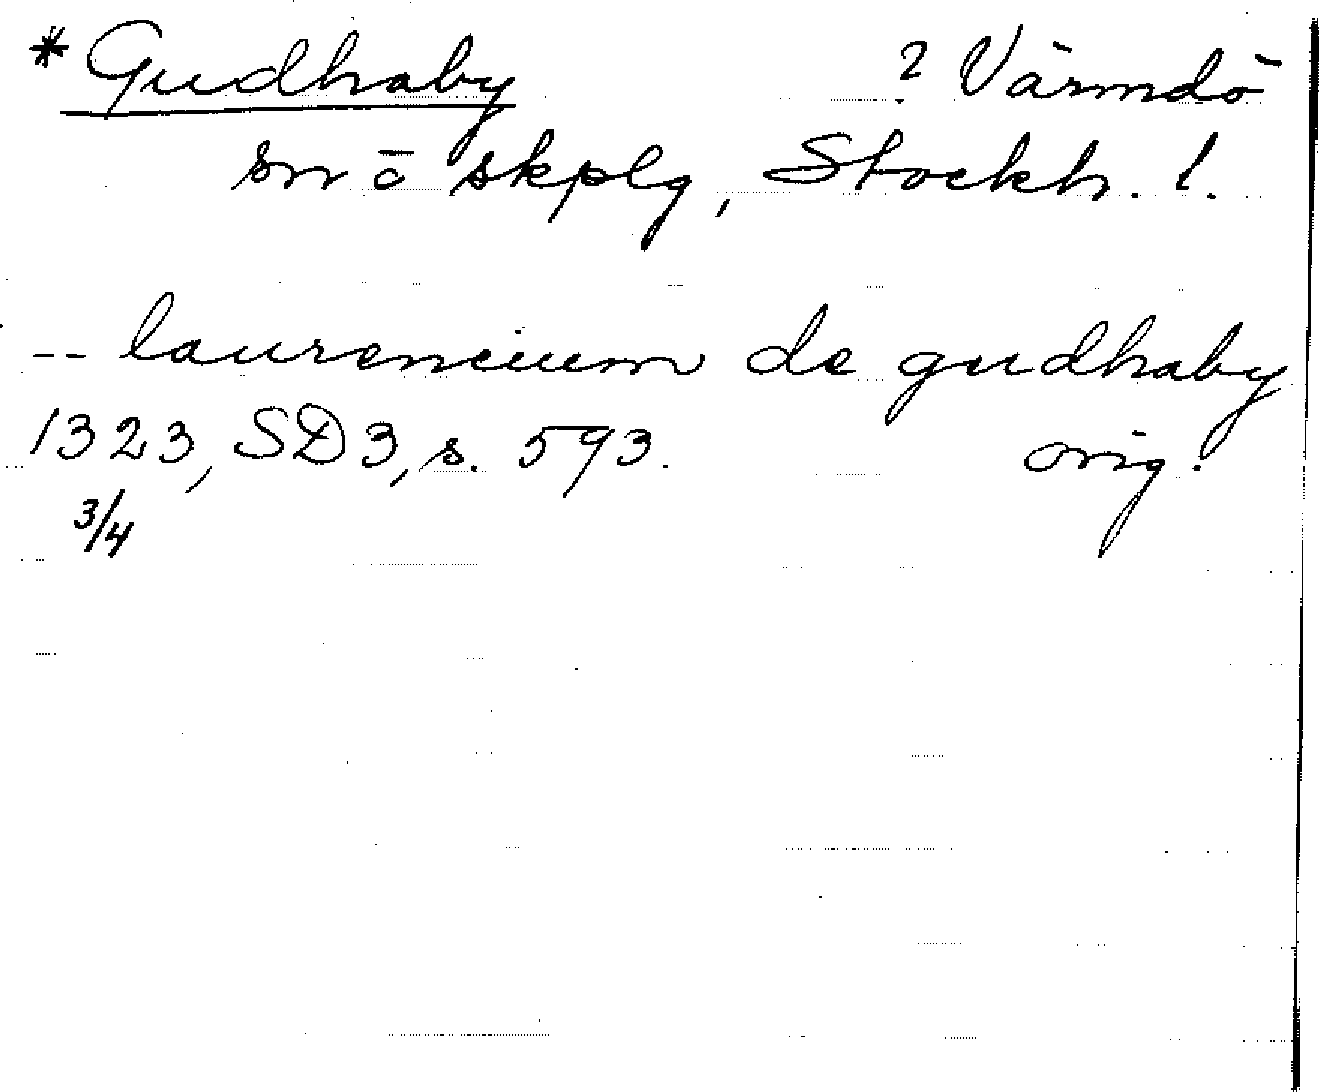 * Gudhaby ? Värmdö
sn o skplg, Stockh. l.
-- laurencium de gudhaby
1323, SD3, s. 593. orig.
3/4